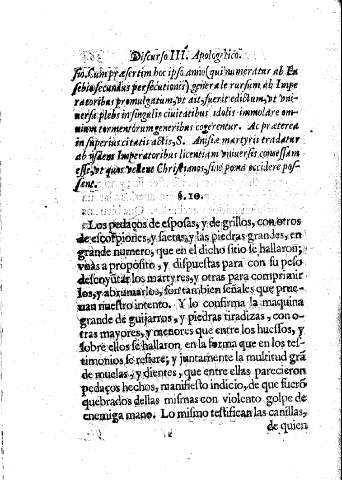 Discurso III. Apologetico.
sio. Cum præsertim hoc ipso anno (qui numeratur ab Eu
sebio secundus persecutionis) generale rursum ab Impe
ratoribus promulgatum, vt ait, fuerit edictum, vt vni-
uersa plebs in singulis ciuitatibus idolis immolare om-
nium tormentorum generibus cogerentur. Ac præterea
in superius citatis actis, S. Anisiæ martyris tradatur
ab ijsdem Imperatoribus licentiam vniuersis concessam
esse, vt quos vellent Christianos, sine poena occidere pos-
sent.
§. 10.
Los pedaços de esposas, y de grillos, con otros
de escorpiones, y saetas, y las piedras grandes, en
grande numero, que en el dicho sitio se hallaron;
vnas a proposito, y dispuestas para con su peso
descoyūtar los martyres, y otras para comprimir
los, y abrumarlos, son tambien señales que prue-
uan nuestro intento. Y lo confirma la maquina
grande de guijarros, y piedras tiradizas, con o-
tras mayores, y menores que entre los huessos, y
sobre ellos se hallaron en la forma que en los tes-
timonios se refiere; y juntamente la multitud grā
de muelas, y dientes, que entre ellas parecieron
pedaços hechos, manifiesto indicio, de que fuerō
quebrados dellas mismas con violento golpe de
enemiga mano. Lo mismo testifican las canillas,
de quien